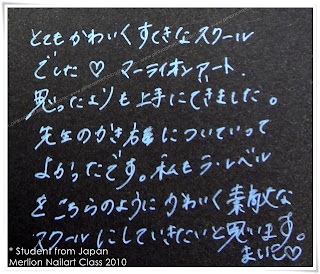 とてもかわいくすてきなスクール
でした♡ マーライオンアート、
思ったよりも上手にできました。
先生のかき方についていって
よかったです。私もラ・レベル
をこちらのようにかわいく素敵な
スクールにしていきたいと思います。
まいこ♡
* Student from Japan
Merlion Nailart Class 2010